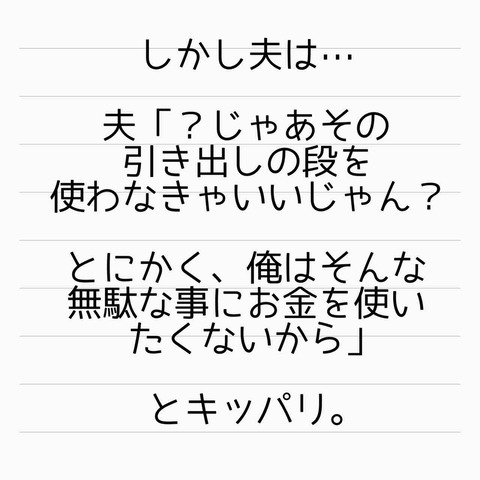 しかし夫は…
夫「？じゃあその
引き出しの段を
使わなきゃいいじゃん？
とにかく、俺はそんな
無駄な事にお金を使い
たくないから」
とキッパリ。